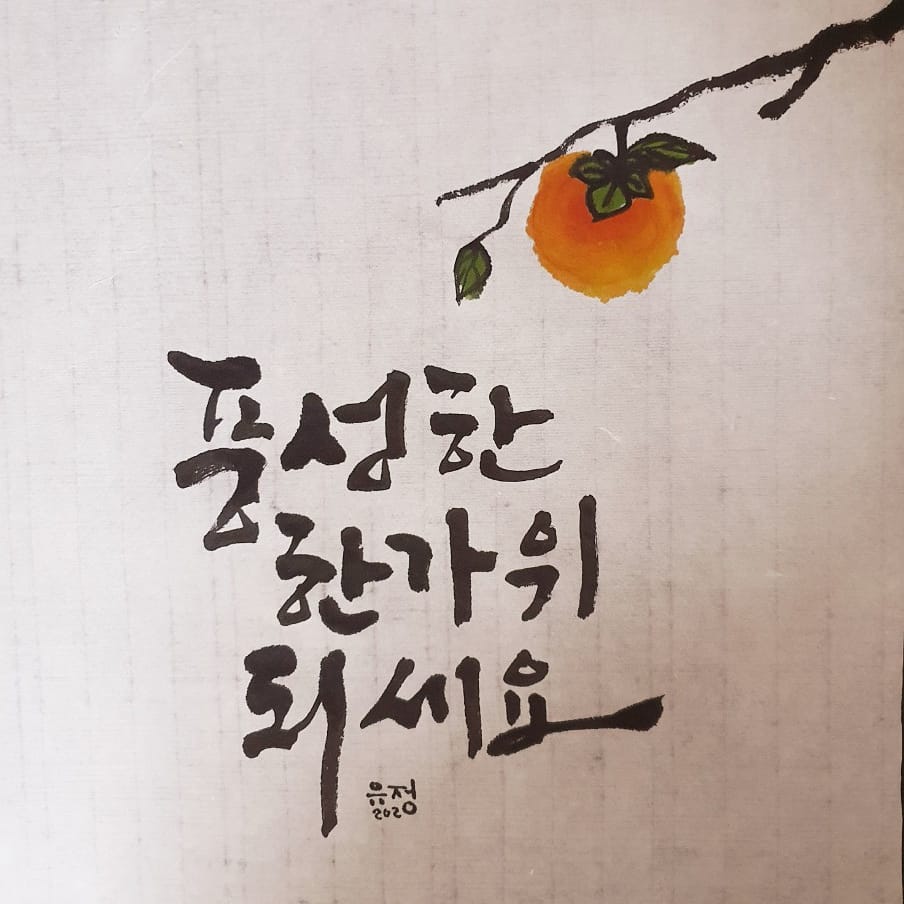 풍성한
한가위
되세요
유정
2020